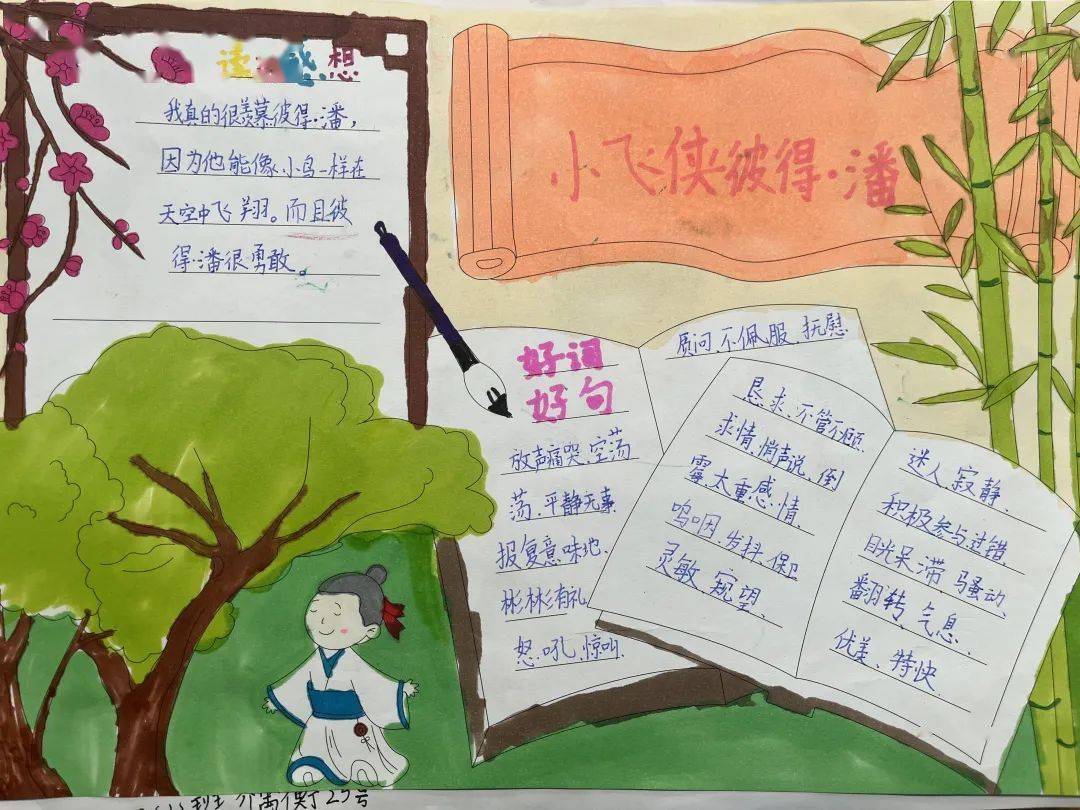 读 感想
我真的很羡慕彼得·潘，
因为他能像小鸟一样在
天空中飞翔。而且彼
得·潘很勇敢。
小飞侠彼得·潘
好词
好句
放声痛哭、空荡
荡、平静无事
报复意味地、
彬彬有礼
怒吼、惊叫、
质问、不佩服、抚慰、
恳求、不管不顾、
求情、悄声说、倒
霉、太重感情、
呜咽、发抖、保卫
灵敏、窥望、
迷人、寂静、
积极参与、过错、
目光呆滞、骚动、
翻转、气息、
优美、特快、
班 25号